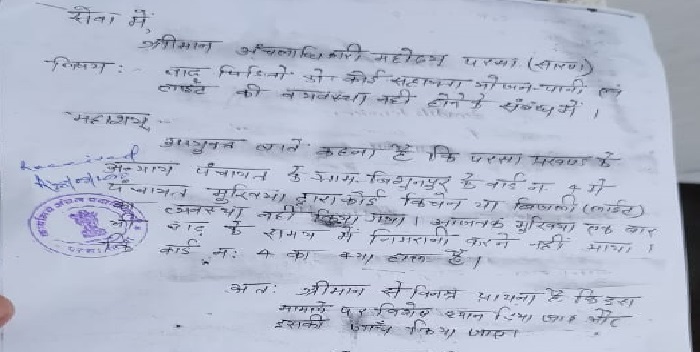 सेवा में,
श्रीमान अंचलाधिकारी महोदय परसा (सारण)
विषय :- बाढ़ पिडितो को कोई सहायता भोजन-पानी एवं
लाईट की व्यवस्था नही होने के संबंध में ।
महाशय,
उपर्युक्त बातें कहना है कि परसा प्रखण्ड के
Received
अन्याय पंचायत के ग्राम के वार्ड न 4 में
पंचायत मुखिया द्वारा कोई किचेन या बिजली (लाईट)
का व्यवस्था नहीं किया गया । आजतक मुखिया एक बार
भी बाढ़ के समय में निगरानी करने नहीं आया ।
कि वार्ड न: 4 का क्या हाल है ।
अतः श्रीमान से विनम्र प्रार्थना है कि इस
मामले पर विशेष ध्यान दिया जाए और
इसकी जाँच किया जाए।